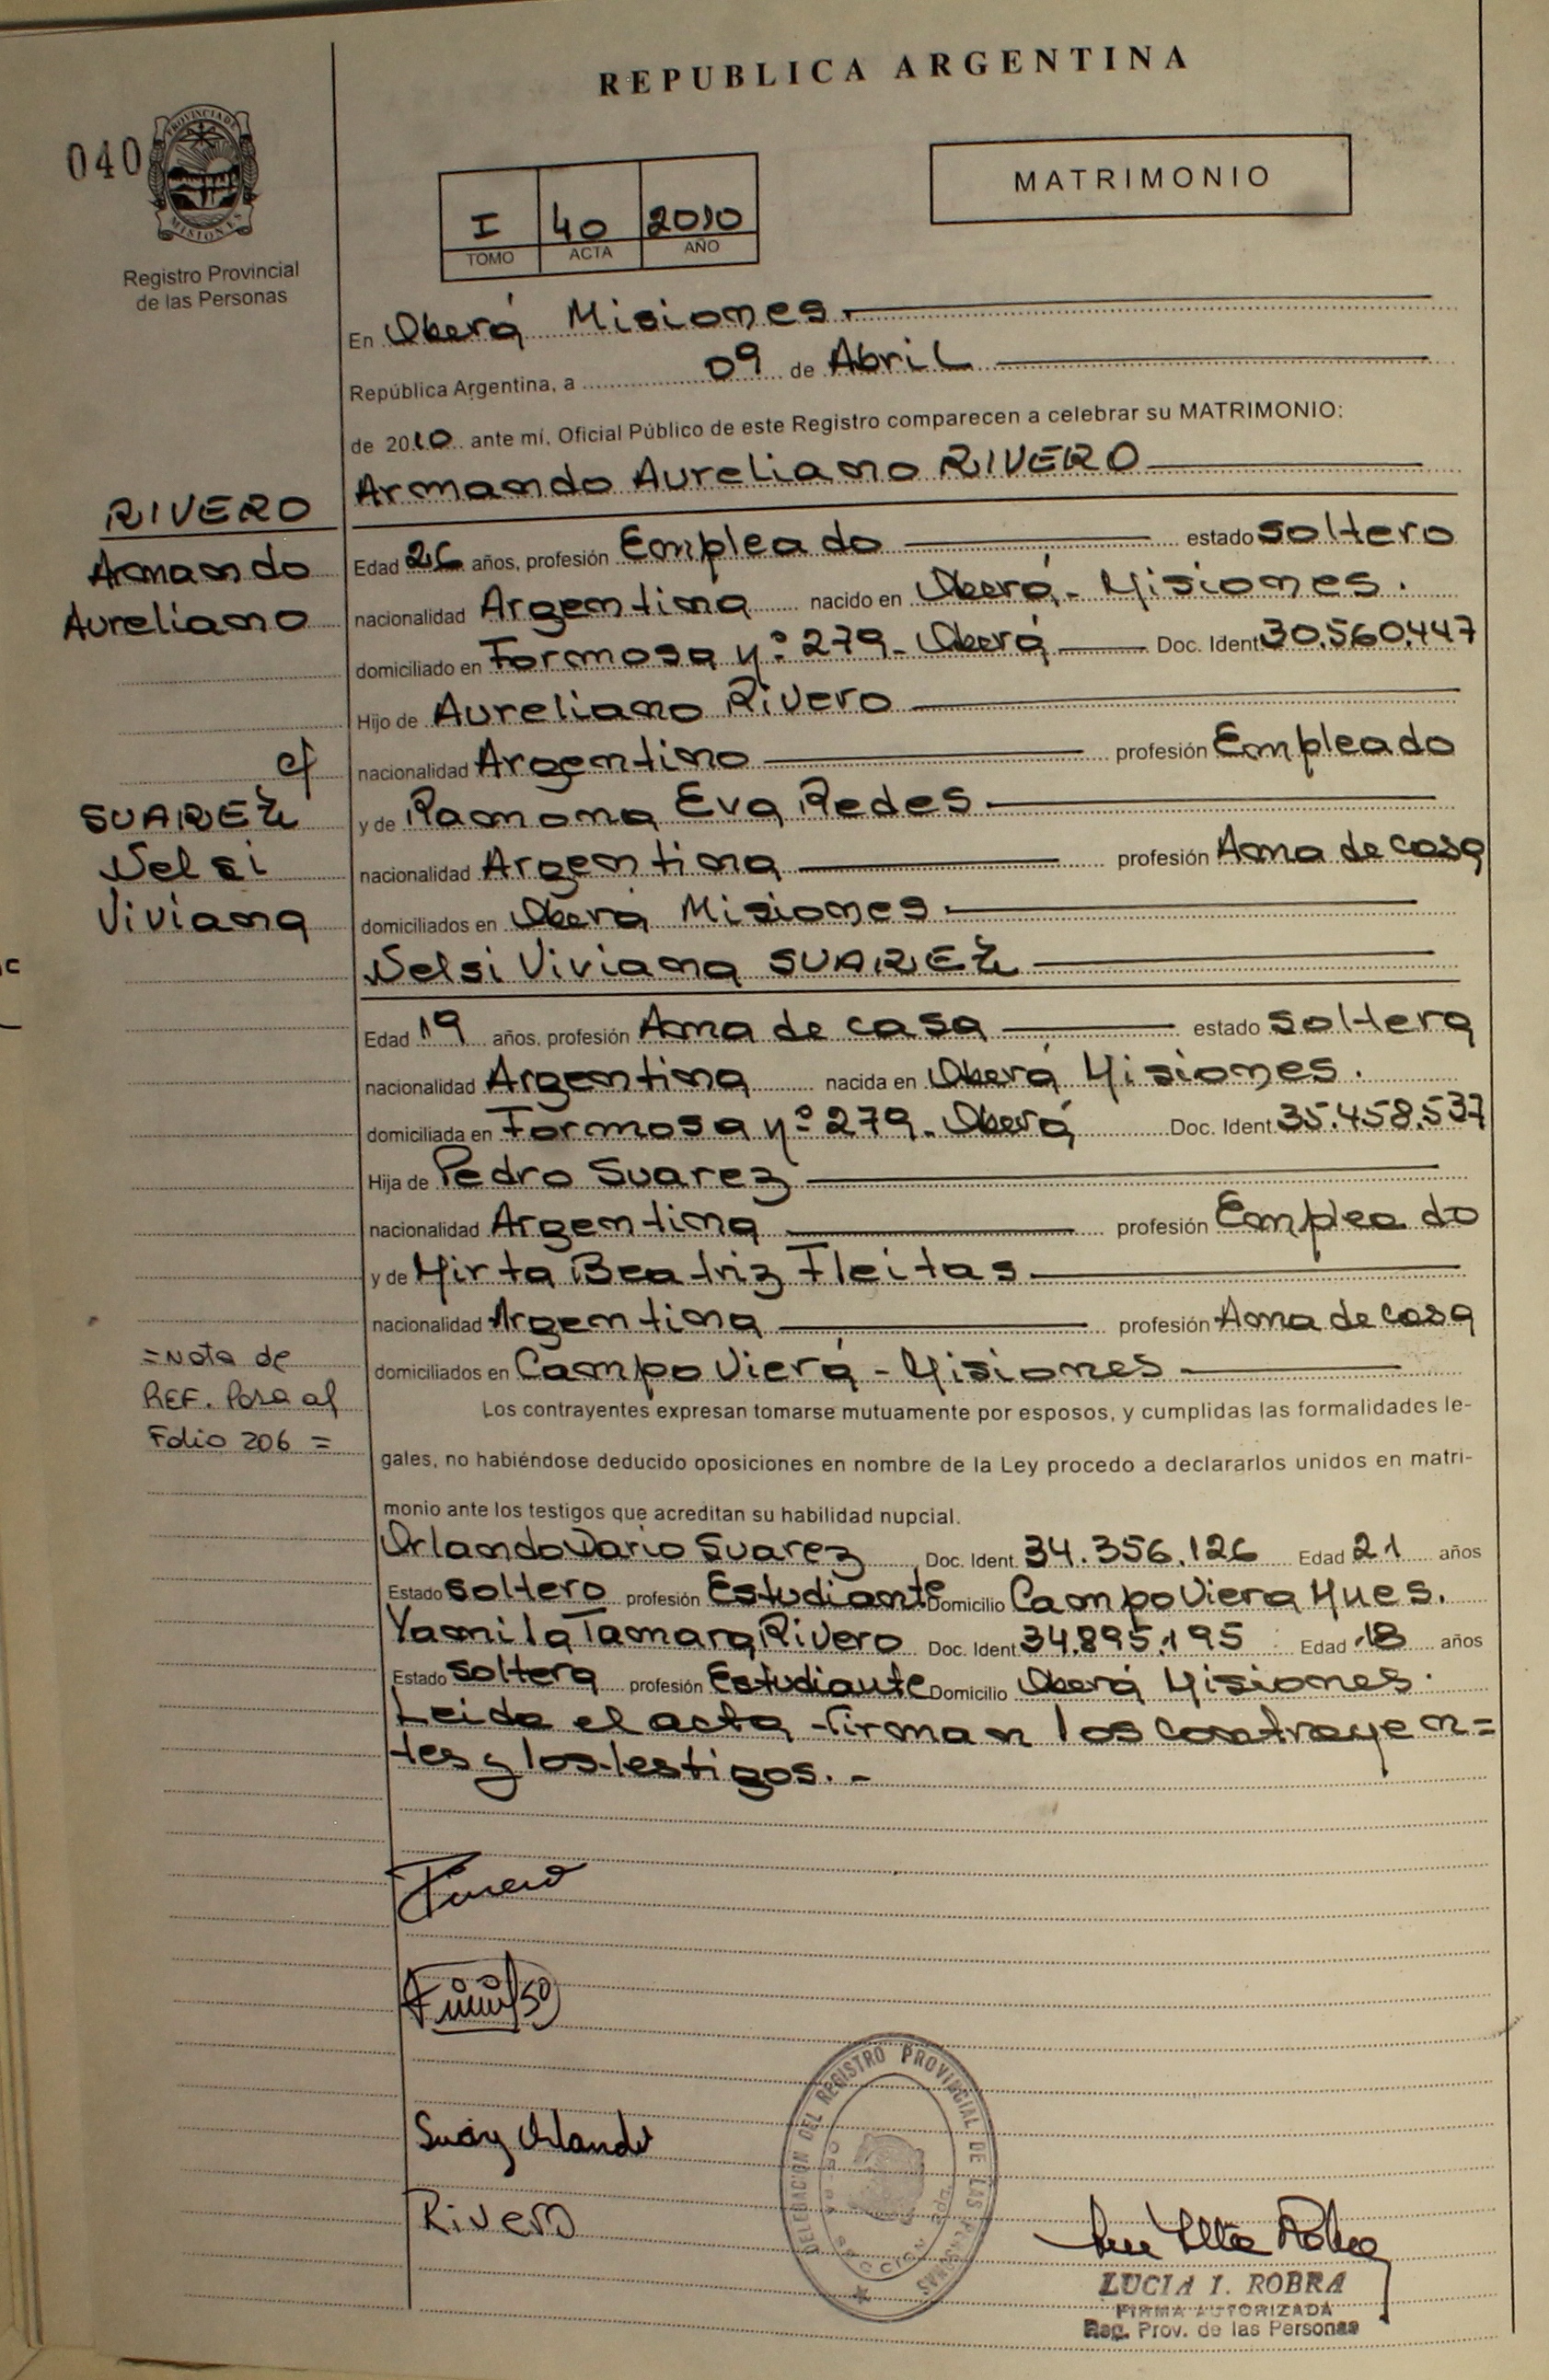 REPUBLICA ARGENTINA
040
PROVINCIA DE
MISIONES
Registro Provincial
de las Personas
I 40 2010
TOMO ACTA AÑO
MATRIMONIO
En Oberá Misiones.
República Argentina, a 09 de Abril
de 2010 ante mí, Oficial Público de este Registro comparecen a celebrar su MATRIMONIO:
Armando Aureliano RIVERO
RIVERO
Armando
Aureliano
c/
SUAREZ
Nelsi
Viviana
Edad 26 años, profesión Empleado estado soltero
nacionalidad Argentina nacido en Oberá - Misiones.
domiciliado en Formosa Nº 279 - Oberá Doc. Ident 30.560.447
Hijo de Aureliano Rivero
nacionalidad Argentino profesión Empleado
y de Ramona Eva Redes
nacionalidad Argentina profesión Ama de casa
domiciliados en Oberá Misiones
Nelsi Viviana SUAREZ
Edad 19 años, profesión Ama de casa estado soltera
nacionalidad Argentina nacida en Oberá Misiones.
domiciliada en Formosa Nº 279 - Oberá Doc. Ident. 35.458.537
Hija de Pedro Suarez
nacionalidad Argentina profesión Empleado
y de Mirta Beatriz Fleitas
nacionalidad Argentina profesión Ama de casa
domiciliados en Campo Vierá - Misiones
=Nota de
REF. Pasa al
Folio 206 =
Los contrayentes expresan tomarse mutuamente por esposos, y cumplidas las formalidades le-
gales, no habiéndose deducido oposiciones en nombre de la Ley procedo a declararlos unidos en matri-
monio ante los testigos que acreditan su habilidad nupcial.
Orlando Dario Suarez Doc. Ident. 34.356.126 Edad 21 años
Estado soltero profesión Estudiante Domicilio Campo Viera Mnes.
Yamila Tamara Rivero Doc. Ident. 34.895.195 Edad 18 años
Estado soltera profesión Estudiante Domicilio Oberá Misiones.
Leida el acta firman los contrayen=
tes y los testigos. -
Suarez Orlando
Rivero
DELEGACIÓN DEL REGISTRO PROVINCIAL DE LAS PERSONAS
LUCIA I. ROBRA
FIRMA AUTORIZADA
Reg. Prov. de las Personas